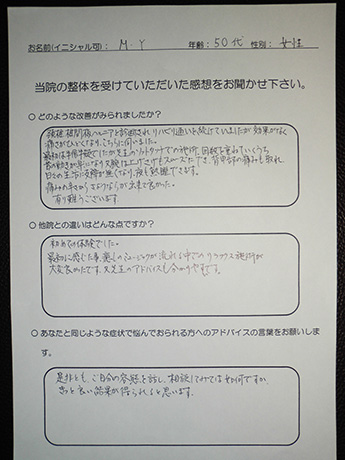 お名前(イニシャル可): M・Y 年齢: 50代 性別: 女性
当院の整体を受けていただいた感想をお聞かせ下さい。
○どのような改善がみられましたか?
頚椎椎間板ヘルニアと診断されリハビリ通いを続けていましたが効果がなく
痛みがひどくなり、こちらに伺いました。
最初は半信半疑でしたが先生のソフトタッチでの施術、回数を重ねていくうち
首の動きが楽になり
日々の生活に支障が無くなり、夜も熟睡できます。
有り難うございます
○他院との違いはどんな点ですか?
初めての体験でした。
最初に感じた事、癒しのミュージックが流れる中でのリラックス施術が
大変良かったです。又先生のアドバイスも分かりやすいです。
○あなたと同じような症状で悩んでおられる方へのアドバイスの言葉をお願いしま
す。
是非とも、ご自分の容態を話し、相談してみては如何ですか。
きっと良い結果が得られると思います。